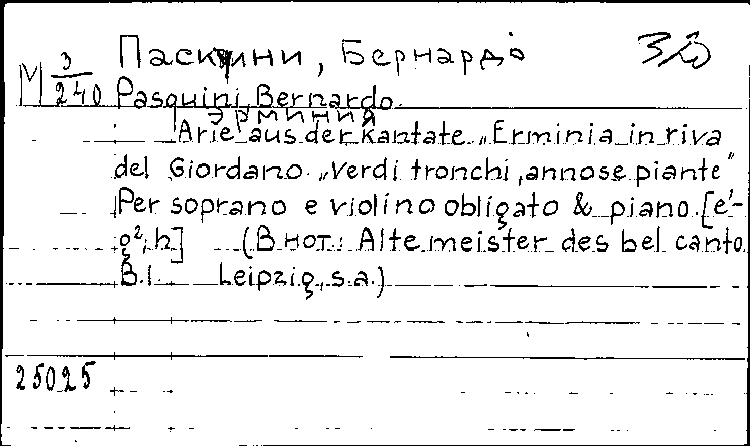 Паскуини, Бернардо
М 3/240 Pasquini, Bernardo.
Эрминия
Arie aus der Kantate „Erminia in riva
del Giordano „Verdi tronchi, annose piante"
Per soprano e violino obligato & piano. [e'-
g², h] (В нот.: Altemeister des bel canto.
B.I. Leipzig, s.a.)
25025